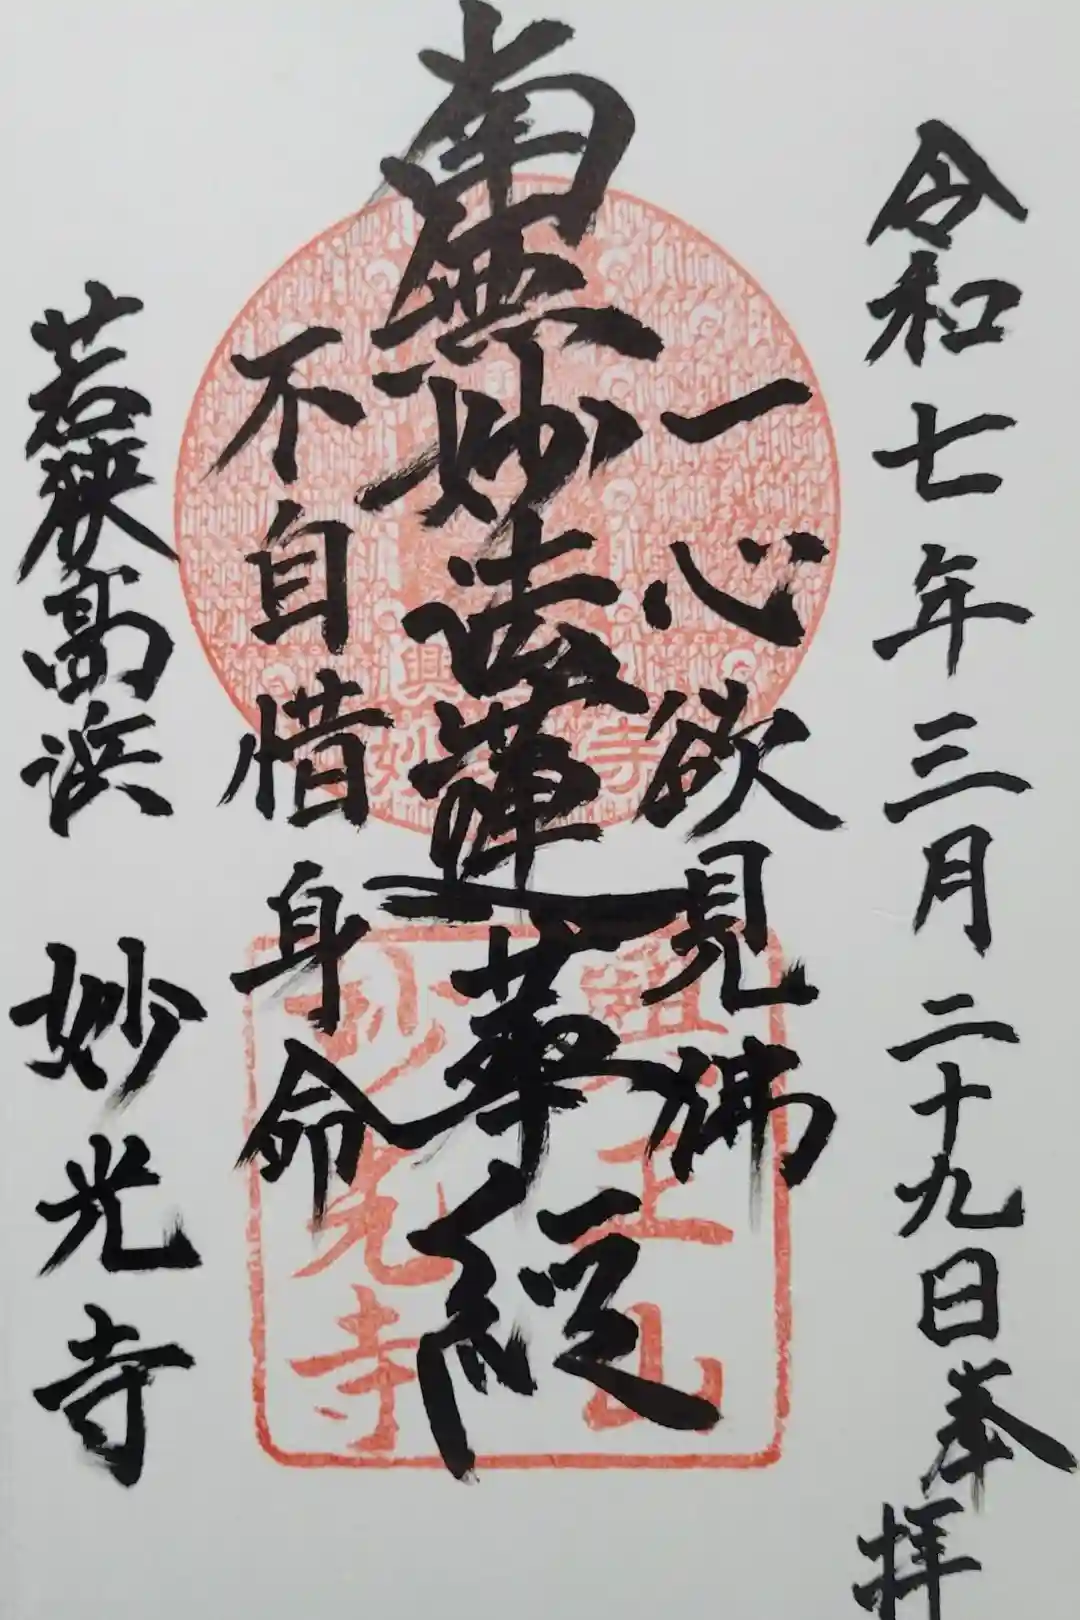 令和七年三月二十九日奉拝
一心欲見佛
南無妙法蓮華経
不自惜身命
若狭高浜 妙光寺
妙 寺
王山
妙光寺